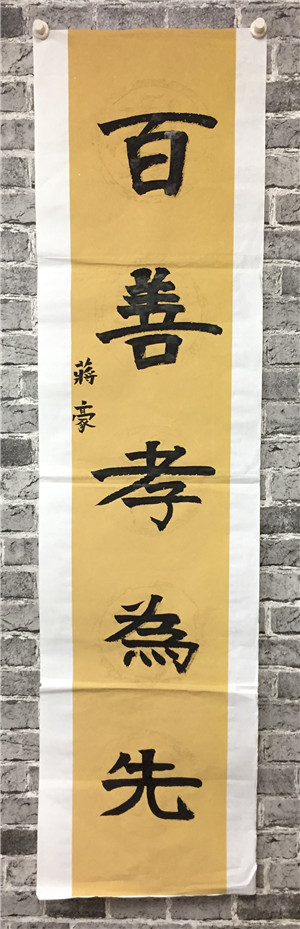 百善孝為先
蔣豪